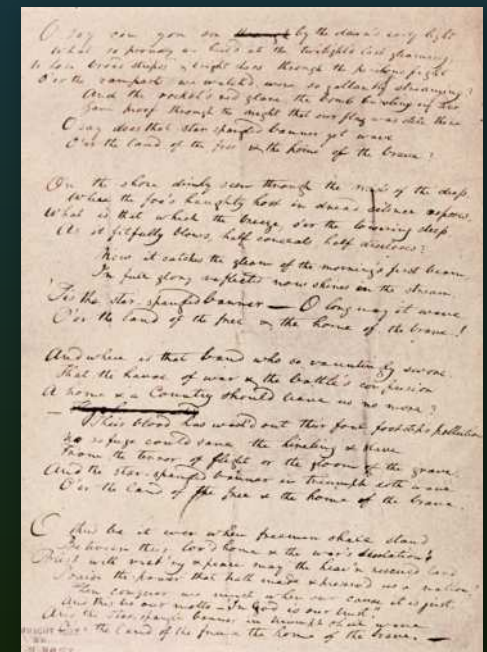 O say can you see by the dawn's early light
What so proudly we hail'd at the twilight's last gleaming,
Whose broad stripes & bright stars through the perilous fight
O'er the ramparts we watch'd, were so gallantly streaming?
And the rocket's red glare, the bomb bursting in air,
Gave proof through the night that our flag was still there
O say does that star-spangled banner yet wave
O'er the land of the free & the home of the brave?
On the shore dimly seen through the mists of the deep,
Where the foe's haughty host in dread silence reposes,
What is that which the breeze, o'er the towering steep,
As it fitfully blows, half conceals half discloses?
Now it catches the gleam of the morning's first beam,
In full glory reflected now shines in the stream,
'Tis the star-spangled banner — O long may it wave
O'er the land of the free & the home of the brave!
And where is that band who so vauntingly swore,
That the havoc of war & the battle's confusion
A home & a Country should leave us no more?
— Their blood has wash'd out their foul footstep's pollution
No refuge could save the hireling & slave
From the terror of flight or the gloom of the grave,
And the star-spangled banner in triumph doth wave
O'er the land of the free & the home of the brave.
O thus be it ever when freemen shall stand
Between their lov'd home & the war's desolation!
Blest with vict'ry & peace may the heav'n rescued land
Praise the power that hath made & preserv'd us a nation!
Then conquer we must, when our cause it is just,
And this be our motto — "In God is our trust."
And the star-spangled banner in triumph shall wave
O'er the land of the free & the home of the brave. —